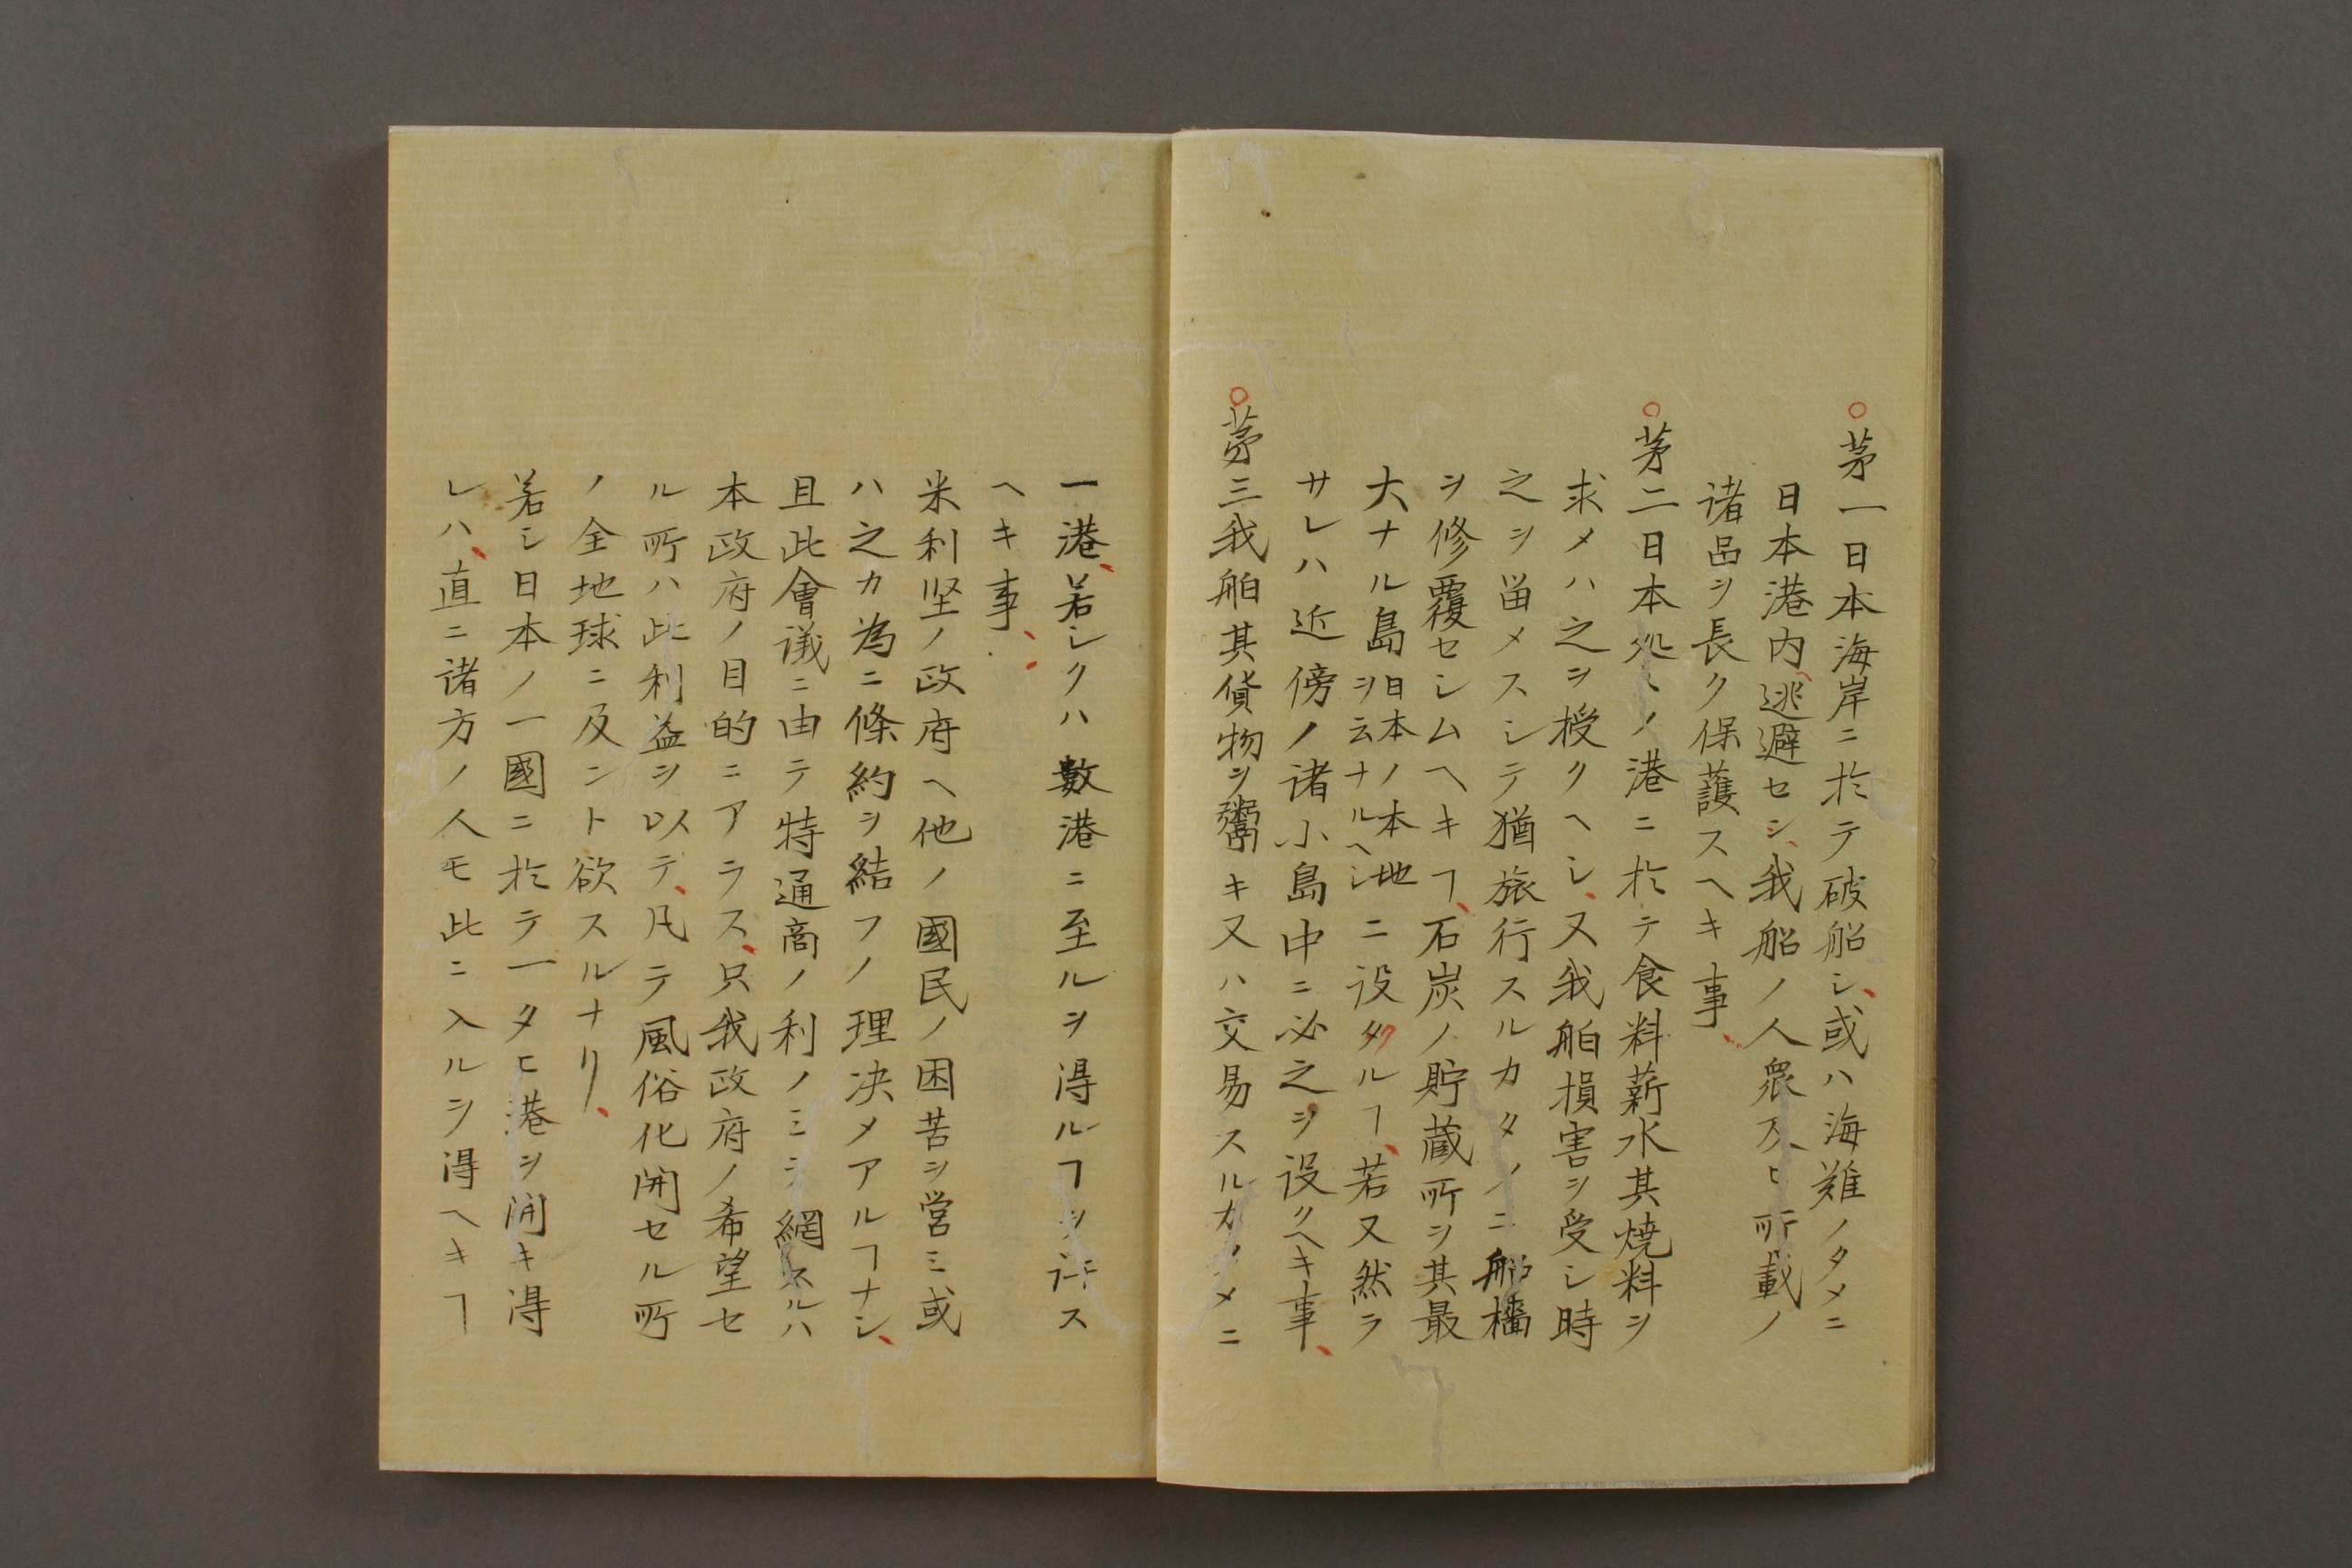 ○第一日本海岸ニ於テ破船シ、或ハ海難ノタメニ
日本港内、逃避セシ、我船ノ人衆及ヒ所載ノ
諸品ヲ長ク保護スヘキ事、
○第二日本処々ノ港ニ於テ食料薪水其焼料ヲ
求メハ之ヲ授クヘシ、又我舶損害ヲ受シ時
之ヲ留メスシテ猶旅行スルカタメニ船檣
ヲ修覆セシムヘキヿ、石炭ノ貯蔵所ヲ其最
大ナル島日本ノ本地ヲ云ナルヘシニ設クルヿ、若又然ラ
サレハ近傍ノ諸小島中ニ必之ヲ設クヘキ事、
○第三我舶其貨物ヲ鬻キ又ハ交易スルカタメニ
一港、若シクハ數港ニ至ルヲ得ルヿヲ許ス
ヘキ事、
米利坚ノ政府ヘ他ノ國民ノ困苦ヲ営ミ或
ハ之カ為ニ條約ヲ結フノ理决メアルヿナシ、
且此會議ニ由テ特通商ノ利ノミヲ網スルハ
本政府ノ目的ニアラス、只我政府ノ希望セ
ル所ハ此利益ヲ以テ、凡テ風俗化開セル所
ノ全地球ニ及ント欲スルナリ、
若シ日本ノ一國ニ於テ一タヒ港ヲ開キ得
レハ、直ニ諸方ノ人モ此ニ入ルヲ得ヘキヿ